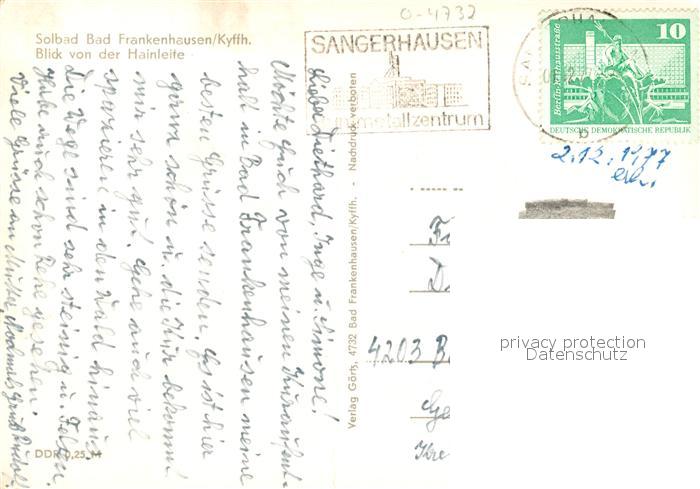 0-4732
Solbad Bad Frankenhausen/Kyffh.
Blick von der Hainleite
SANGERHAUSEN
metallzentrum
10
Berlin-Rathausstraße
DEUTSCHE DEMOKRATISCHE REPUBLIK
b
2.12.1977
erh.
Liebe Diethard, Inge u. Simone!
Möchte Euch von meinen Kuraufent-
halt in Bad Frankenhausen meine
besten Grüsse senden. Es ist hier
ganz schön u. die Kur bekommt
mir sehr gut. Gehe auch viel
spazieren in den Wald hinaus.
die Wege sind sehr steinig u. Felsen.
Habe auch schon Rehe gesehen.
Viele Grüsse an Mutter, Nochmals Gruß Rudolf
Verlag Görtz, 4732 Bad Frankenhausen/Kyffh. - Nachdruck verboten
F.
D.
4203 B.
Ge
Kre
privacy protection
Datenschutz
DDR 0,25 M